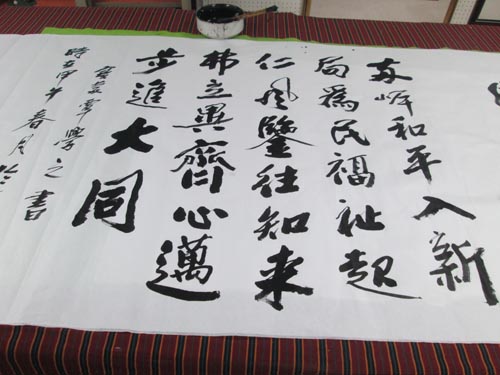 和平入新
局爲民福祉起
仁風鑒往知来
弗立異齊心邁
步進大同
學之書
時在甲午春月於